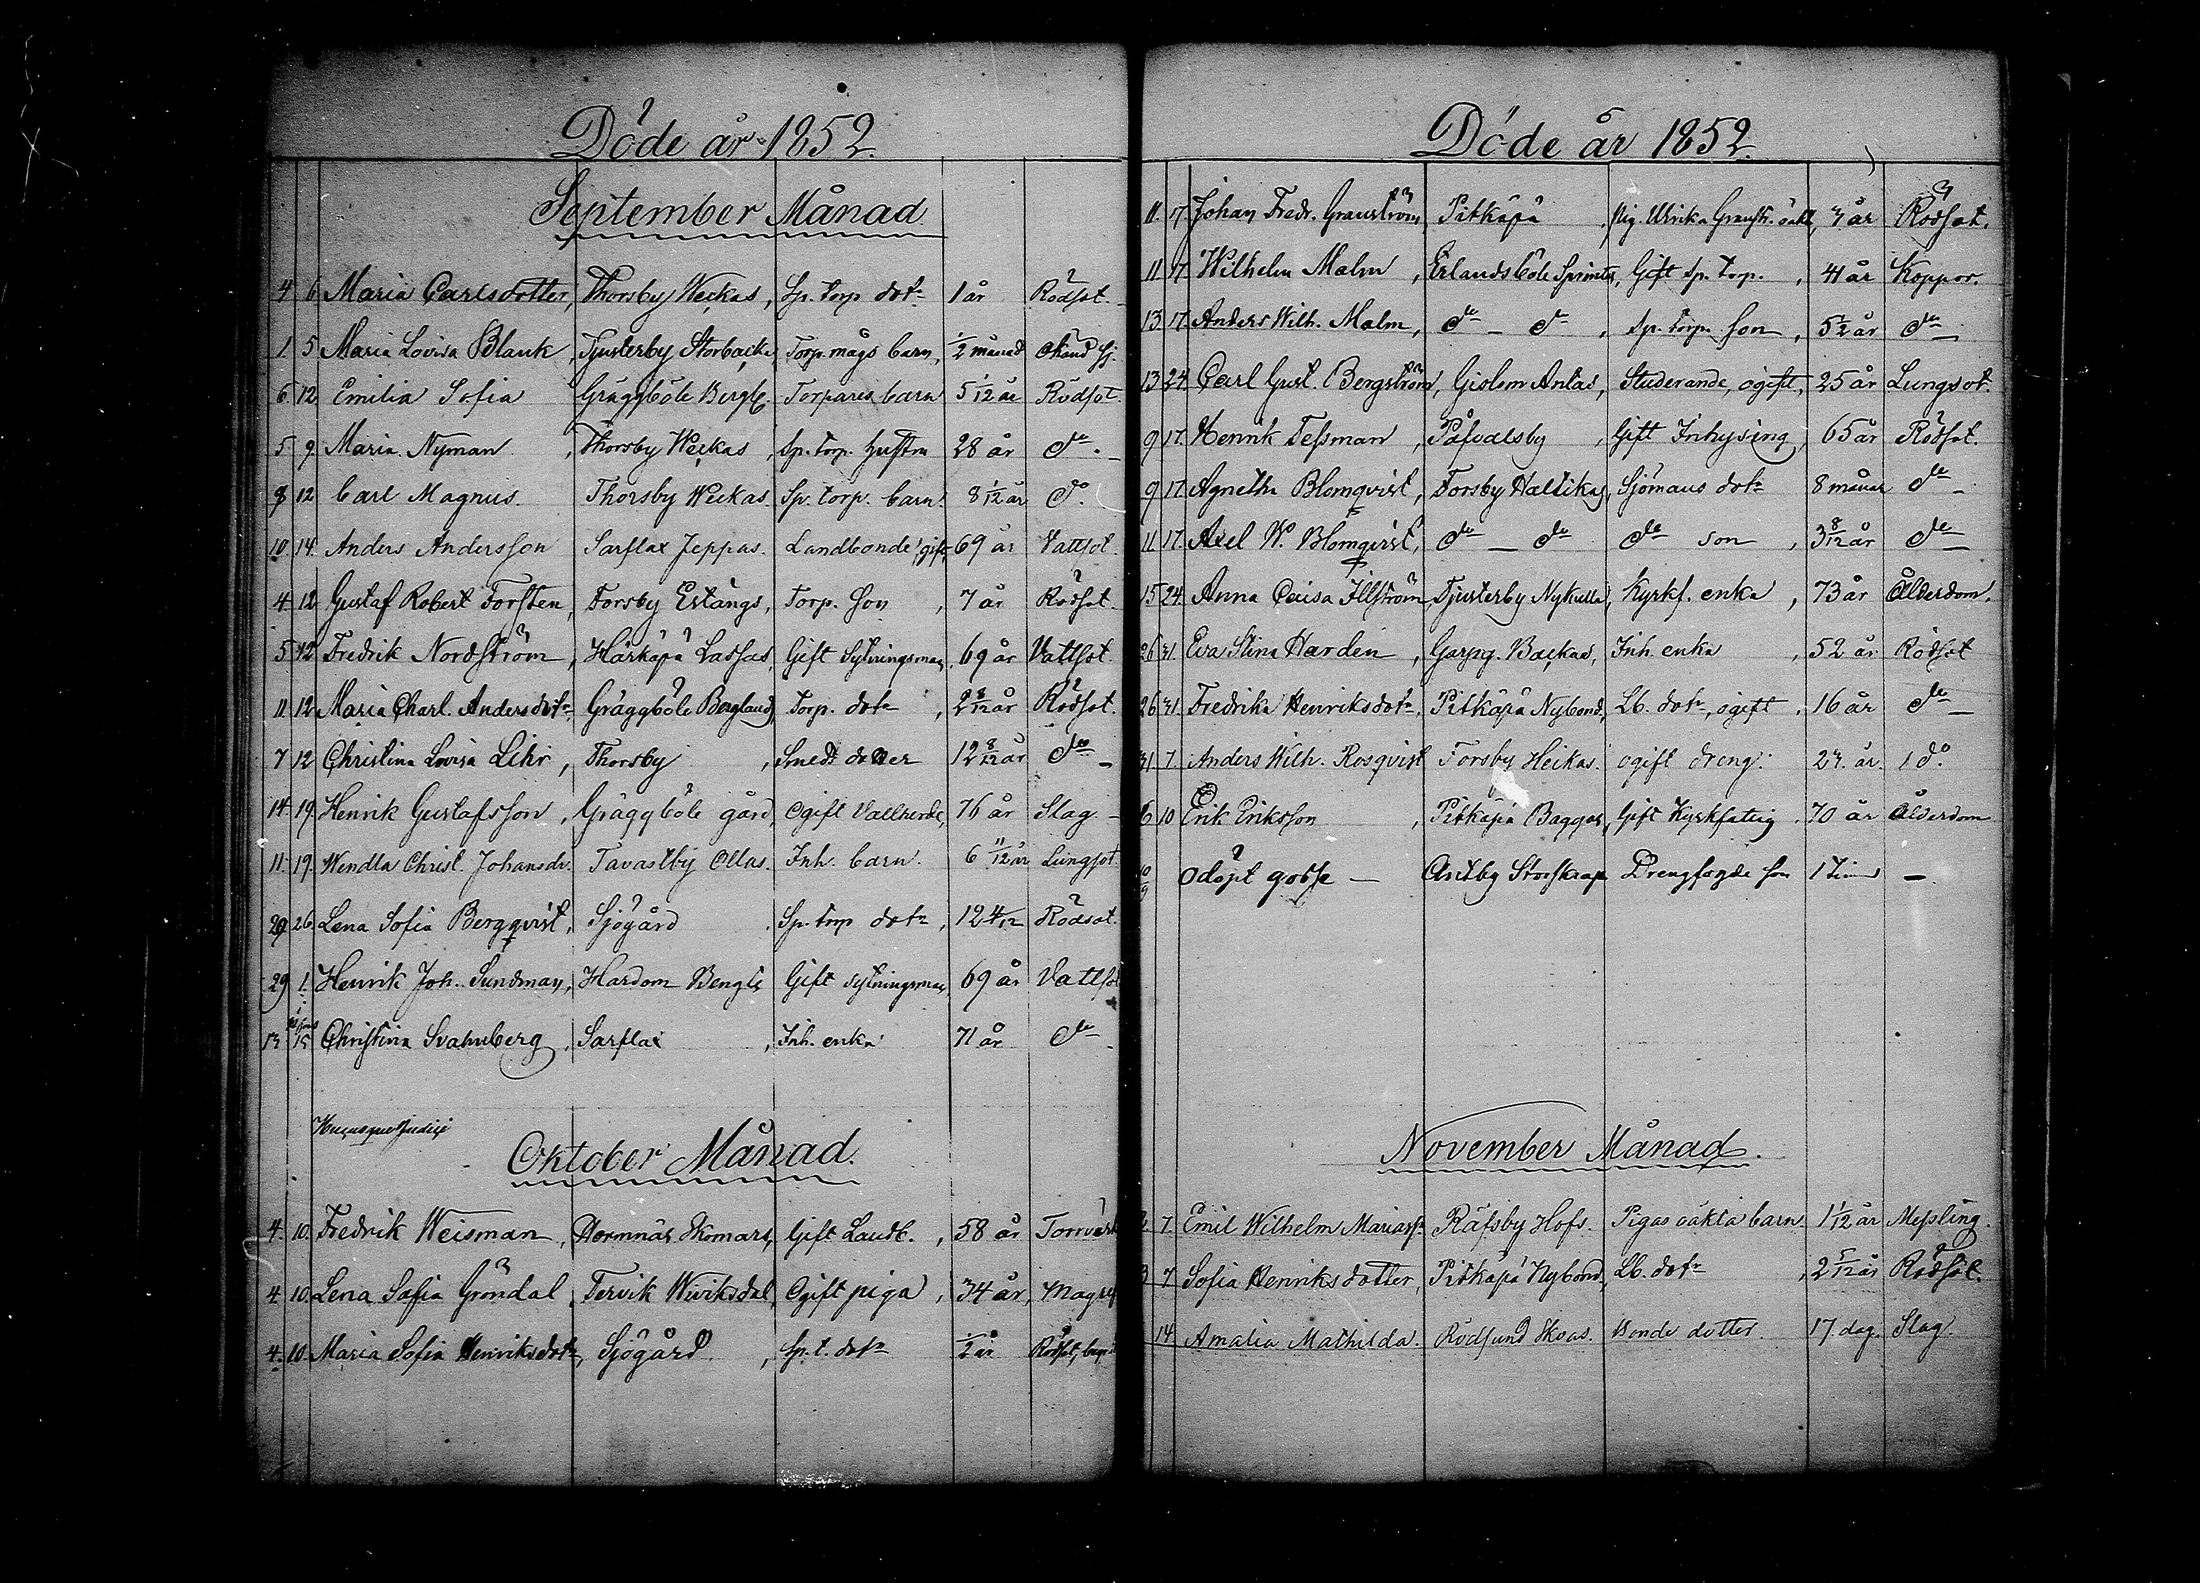 Döde år 1852.
September Månad
4 6 Maria Carlsdotter, Thorsby Weckas, Sp. torp dotr 1 år Rödsot.
1 5 Maria Lovisa Blank, Tjusterby Storbacka, Torp. mågs barn, 1/2 månad Okänd sj.
6 12 Emilia Sofia Gräggböle Bergb. Torpares barn 5 1/12 år Rödsot.
5 9 Maria Nyman, Thorsby Weckas, Sp. torp. hustru 28 år do
8 12 Carl Magnus. Thorsby Weckas. Sp. torp. barn. 8 1/12 år do.
10 14. Anders Andersson Sarflax Jeppas. Landbonde, gift, 69 år Vattsot.
4 12 Gustaf Robert Forsten, Forsby Estängs, Torp. son, 7 år Rödsot.
5 12 Fredrik Nordström, Härkäpä Lassas, Gift Sytningsman, 69 år Vattsot.
11 12 Maria Charl. Andersdotr, Gräggböle Bergland, Torp. dotr, 2 8/12 år Rödsot.
7 12 Christina Lovisa Lihr, Thorsby, Smeds dotter 12 8/12 år do
14. 19. Henrik Gustafsson, Gräggböle gård, Ogift Vallherde, 76 år Slag
11. 19. Wendla Christ. Johansdr. Tavastby Ollas. Inh. barn. 6 11/12 år Lungsot.
29 26. Lena Sofia Bergqvist, Sjögård, Sp. torp dotr, 12 4/12 Rödsot.
29 1. Henrik Joh. Sundman, Hardom Bengts Gift sytningsman, 69 år Vattsot
13 15 Christina Svahnberg, Sarflax, Inh. enka 71 år do
Oktober Månad.
4. 10. Fredrik Weisman, Hormnäs Skomars, Gift Landb., 58 år Torrvärk
4 10. Lena Sofia Gröndal, Tervik Wiviksdal, Ogift piga, 34 år, Magref
4. 10. Maria Sofia Henriksdotr, Sjögård, Sp. t. dotr 1/2 år Rödsot,
Döde år 1852.
11. 17. Johan Fredr. Granström, Pitkäpä, pig. Ulrika Granstr. oäkt, 7 år Rödsot.
11 17. Wilhelm Malm, Erlandsböle Sprints, Gift Sp. torp., 41 år Koppor.
13 17. Anders Wilh. Malm, do - do, Sp. torp. son, 5 1/2 år do
13 24. Carl Gust. Bergström, Gislom Antas, Studerande, ogift, 25 år Lungsot.
9 17. Henrik Tessman, Påfvalsby, Gift Inhysing, 65 år Rödsot.
9 17. Agnetha Blomqvist, Forsby Haltikas, Sjömans dotr 8 månar do
11. 17. Axel W. Blomqvist, do - do do son, 3 8/12 år do
15 24. Anna Caisa Illström, Tjusterby Nykulla, Kyrkf. enka, 73 år Ålderdom.
26 31. Eva Stina Harden, Garpg. Backas, Inh. enka, 52 år Rödsot
26 31. Fredrika Henriksdotr, Pitkäpä Nybond, Lb. dotr, ogift, 16 år do
31 7. Anders Wilh. Rosqvist Forsby Heikas. ogift dreng. 23. år. do.
6 10 Erik Eriksson, Pitkäpä Baggas, Gift Kyrkfattig. 70 år Ålderdom
Odöpt gosse - Antby Storskrap Drengfogde son 1 Tim -
November Månad.
7. Emil Wilhelm Mariass. Räfsby Hofs. Pigas oäkta barn 1 1/12 år Messling.
3 7 Sofia Henriksdotter, Pitkäpä Nybond, Lb. dotr, 2 5/12 år Rödsot.
14. Amalia Mathilda. Rödsund Skoas. Bonde dotter. 17 dag. Slag.